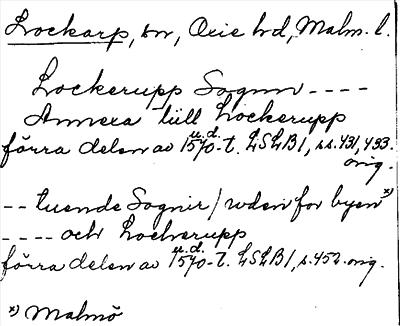 Lockarp, sn, Oxie hd, Malm. l.
Lockerupp Sognn ----
Annexa till Lockerupp
förra delen av 1570-t. u.d. LSLB1, ss. 431, 433.
orig.
-- tuende Sognir / uden for byen x)
---- och Lockerupp
förra delen av 1570-t. u.d. LSLB1, s. 452. orig.
x) Malmö